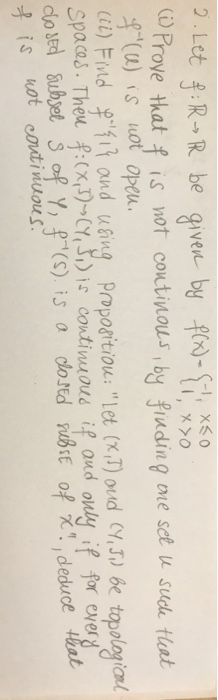 2. Let f: R→R be given by f(x)= {-1, x≤0
1, x>0
(i) Prove that f is not continous, by finding one set u such that
f⁻¹(u) is not open.
(ii) Find f⁻¹{1} and using proposition: "Let (X,J) and (Y,J₁) be topological
spaces. Then f:(X,J)→(Y,J₁) is continuous if and only if for every
closed subset S of Y, f⁻¹(S) is a closed subset of X"., deduce that
f is not continuous.